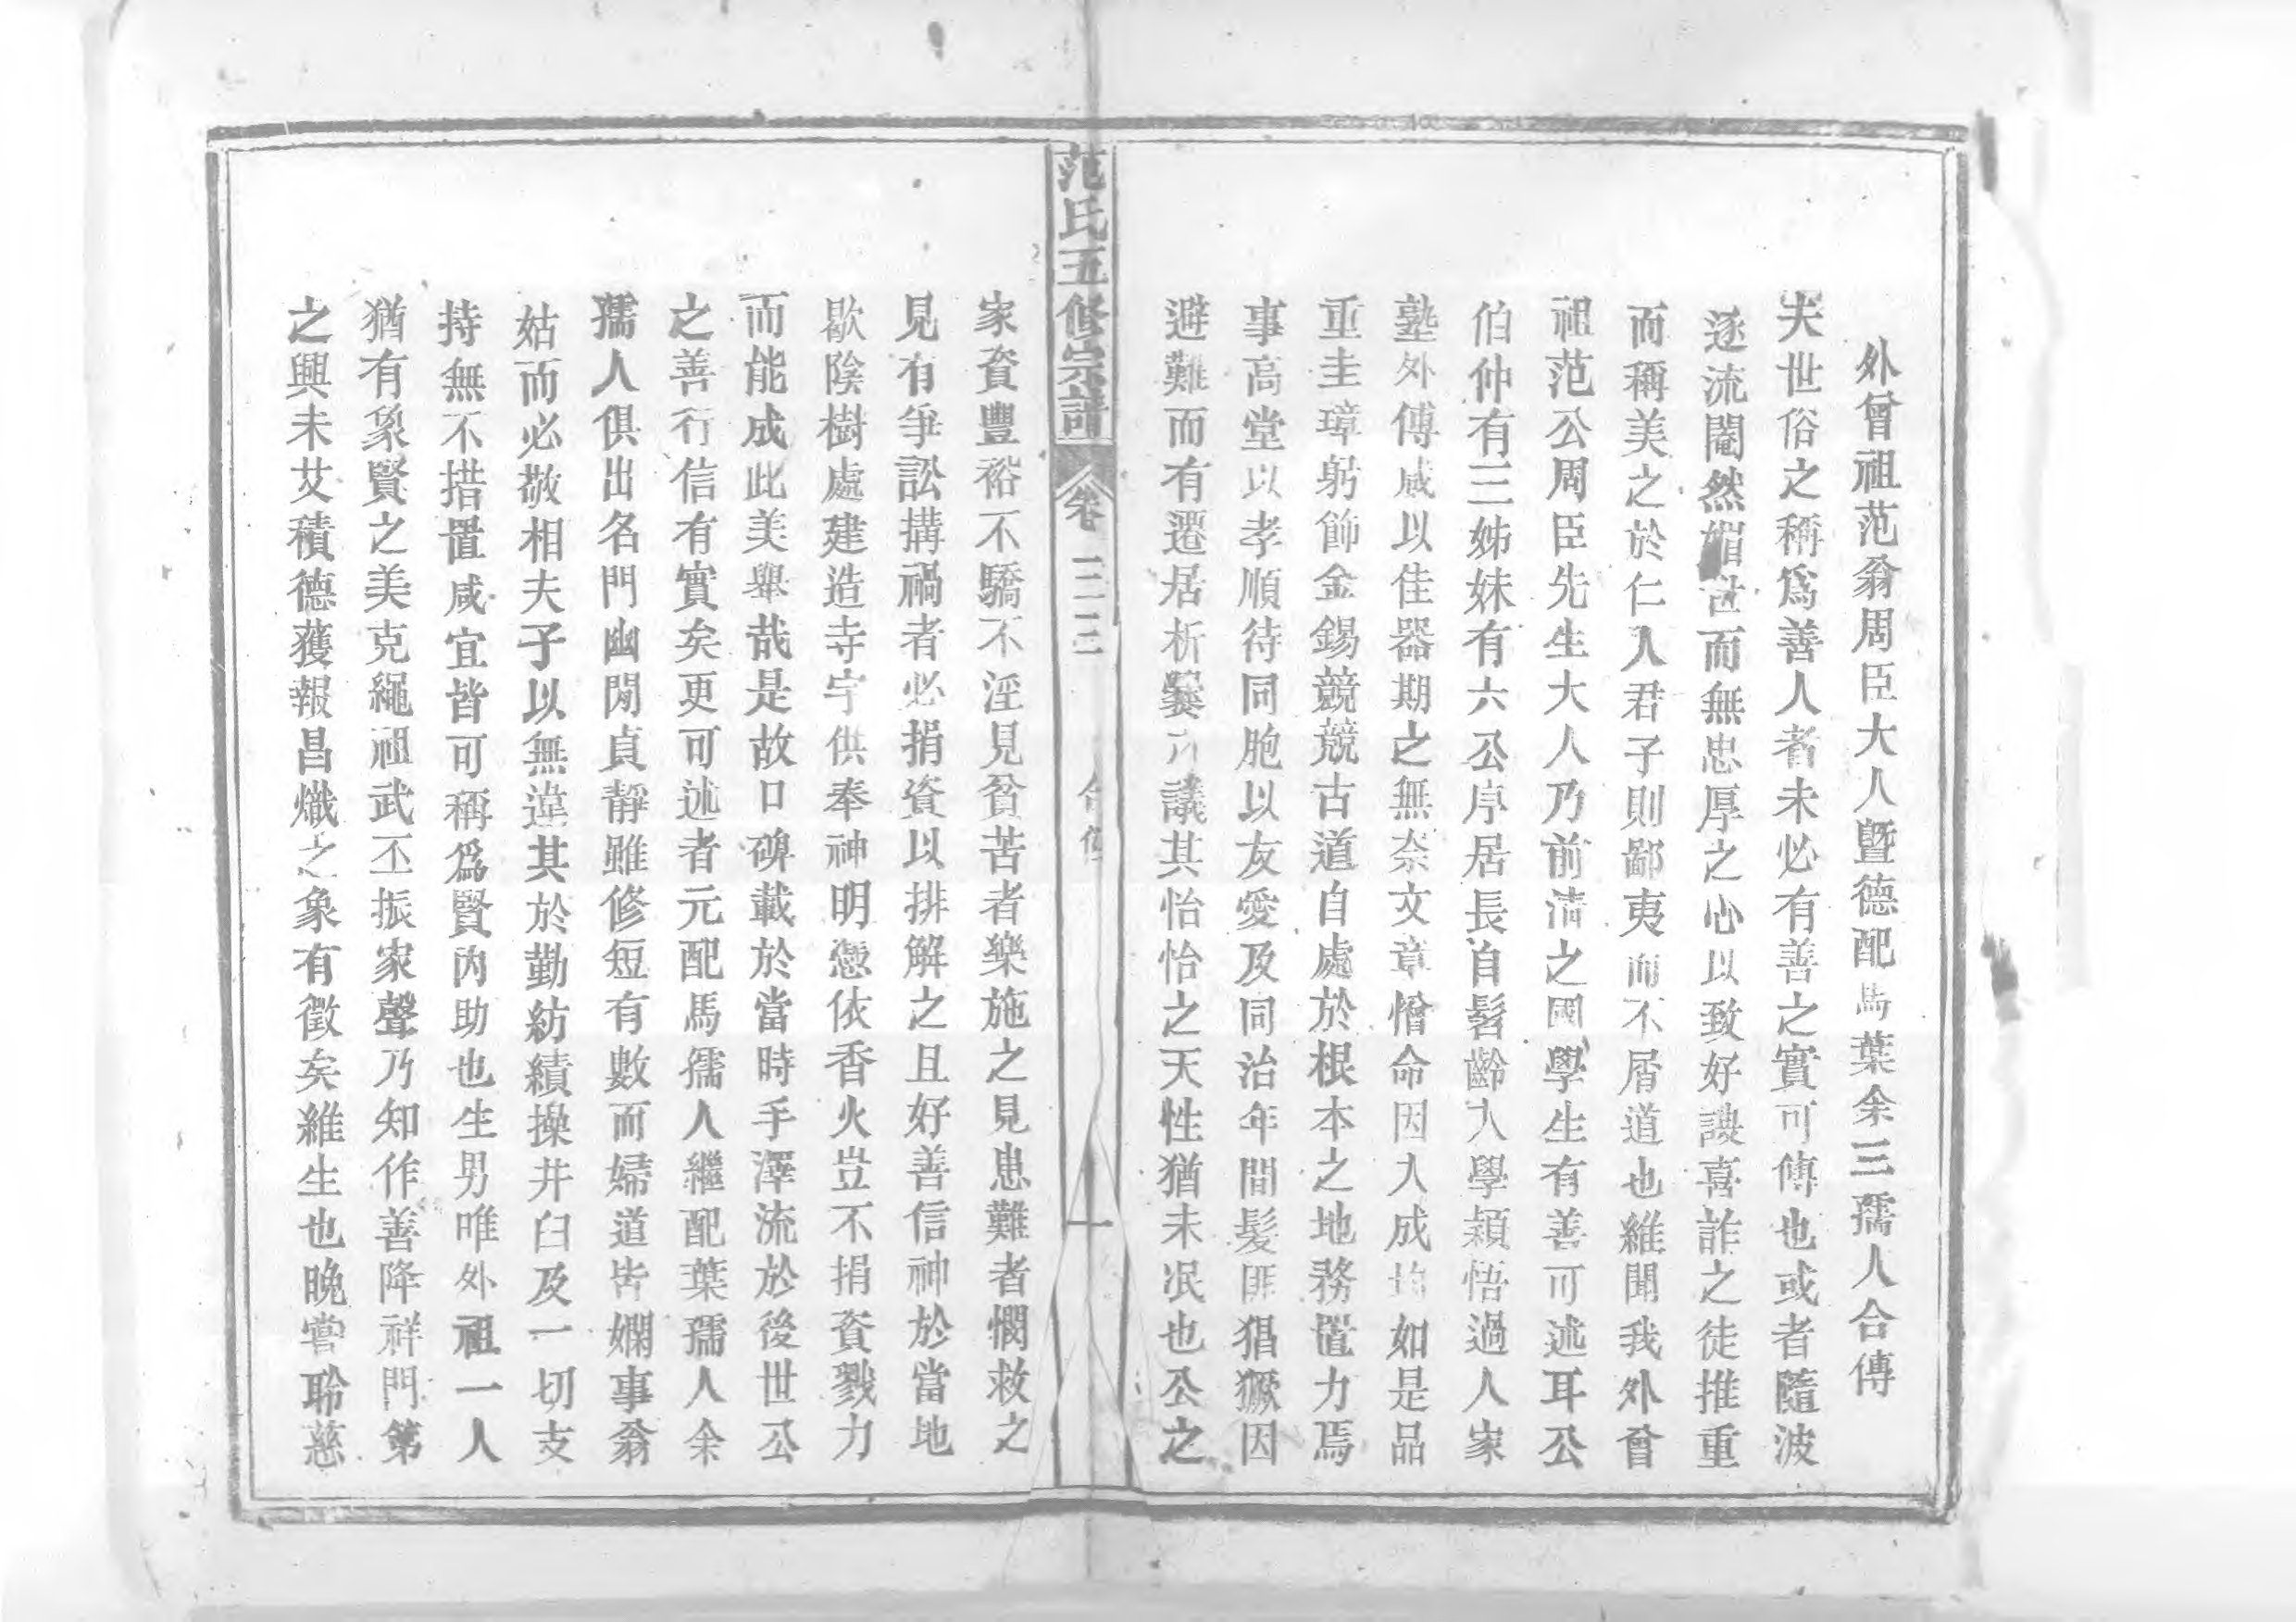 外曾祖范翁周臣大人曁德配馬葉余三孺人合傳
夫世俗之稱爲善人者未必有善之實可傳也或者隨波
逐流閹然媚世而無忠厚之心以致好諛喜詐之徒推重
而稱美之於仁人君子則鄙夷而不屑道也維聞我外曾
祖范公周臣先生大人乃前淸之國學生有善可述耳公
伯仲有三姊妹有六公序居長自髫齡入學穎悟過人家
塾外傅咸以佳器期之無奈文章憎命因人成均如是品
重圭璋躬飾金錫競競古道自處於根本之地務置力焉
事高堂以孝順待同胞以友愛及同治年間髮匪猖獗因
避難而有遷居析爨之議其怡怡之天性猶未泯也公之
范氏五修宗譜 卷三三 合傳 一
家資豐裕不驕不淫見貧苦者樂施之見患難者憫救之
見有爭訟搆禍者必捐資以排解之且好善信神於當地
歇陰樹處建造寺宇供奉神明憑依香火豈不捐資戮力
而能成此美舉哉是故口碑載於當時手澤流於後世公
之善行信有實矣更可述者元配馬孺人繼配葉孺人余
孺人俱出名門幽閒貞靜雖修短有數而婦道皆嫻事翁
姑而必敬相夫子以無違其於勤紡績操井臼及一切支
持無不措置咸宜皆可稱爲賢內助也生男唯外祖一人
猶有象賢之美克繩祖武丕振家聲乃知作善降祥門第
之興未艾積德獲報昌熾之象有徵矣維生也晚嘗聆慈